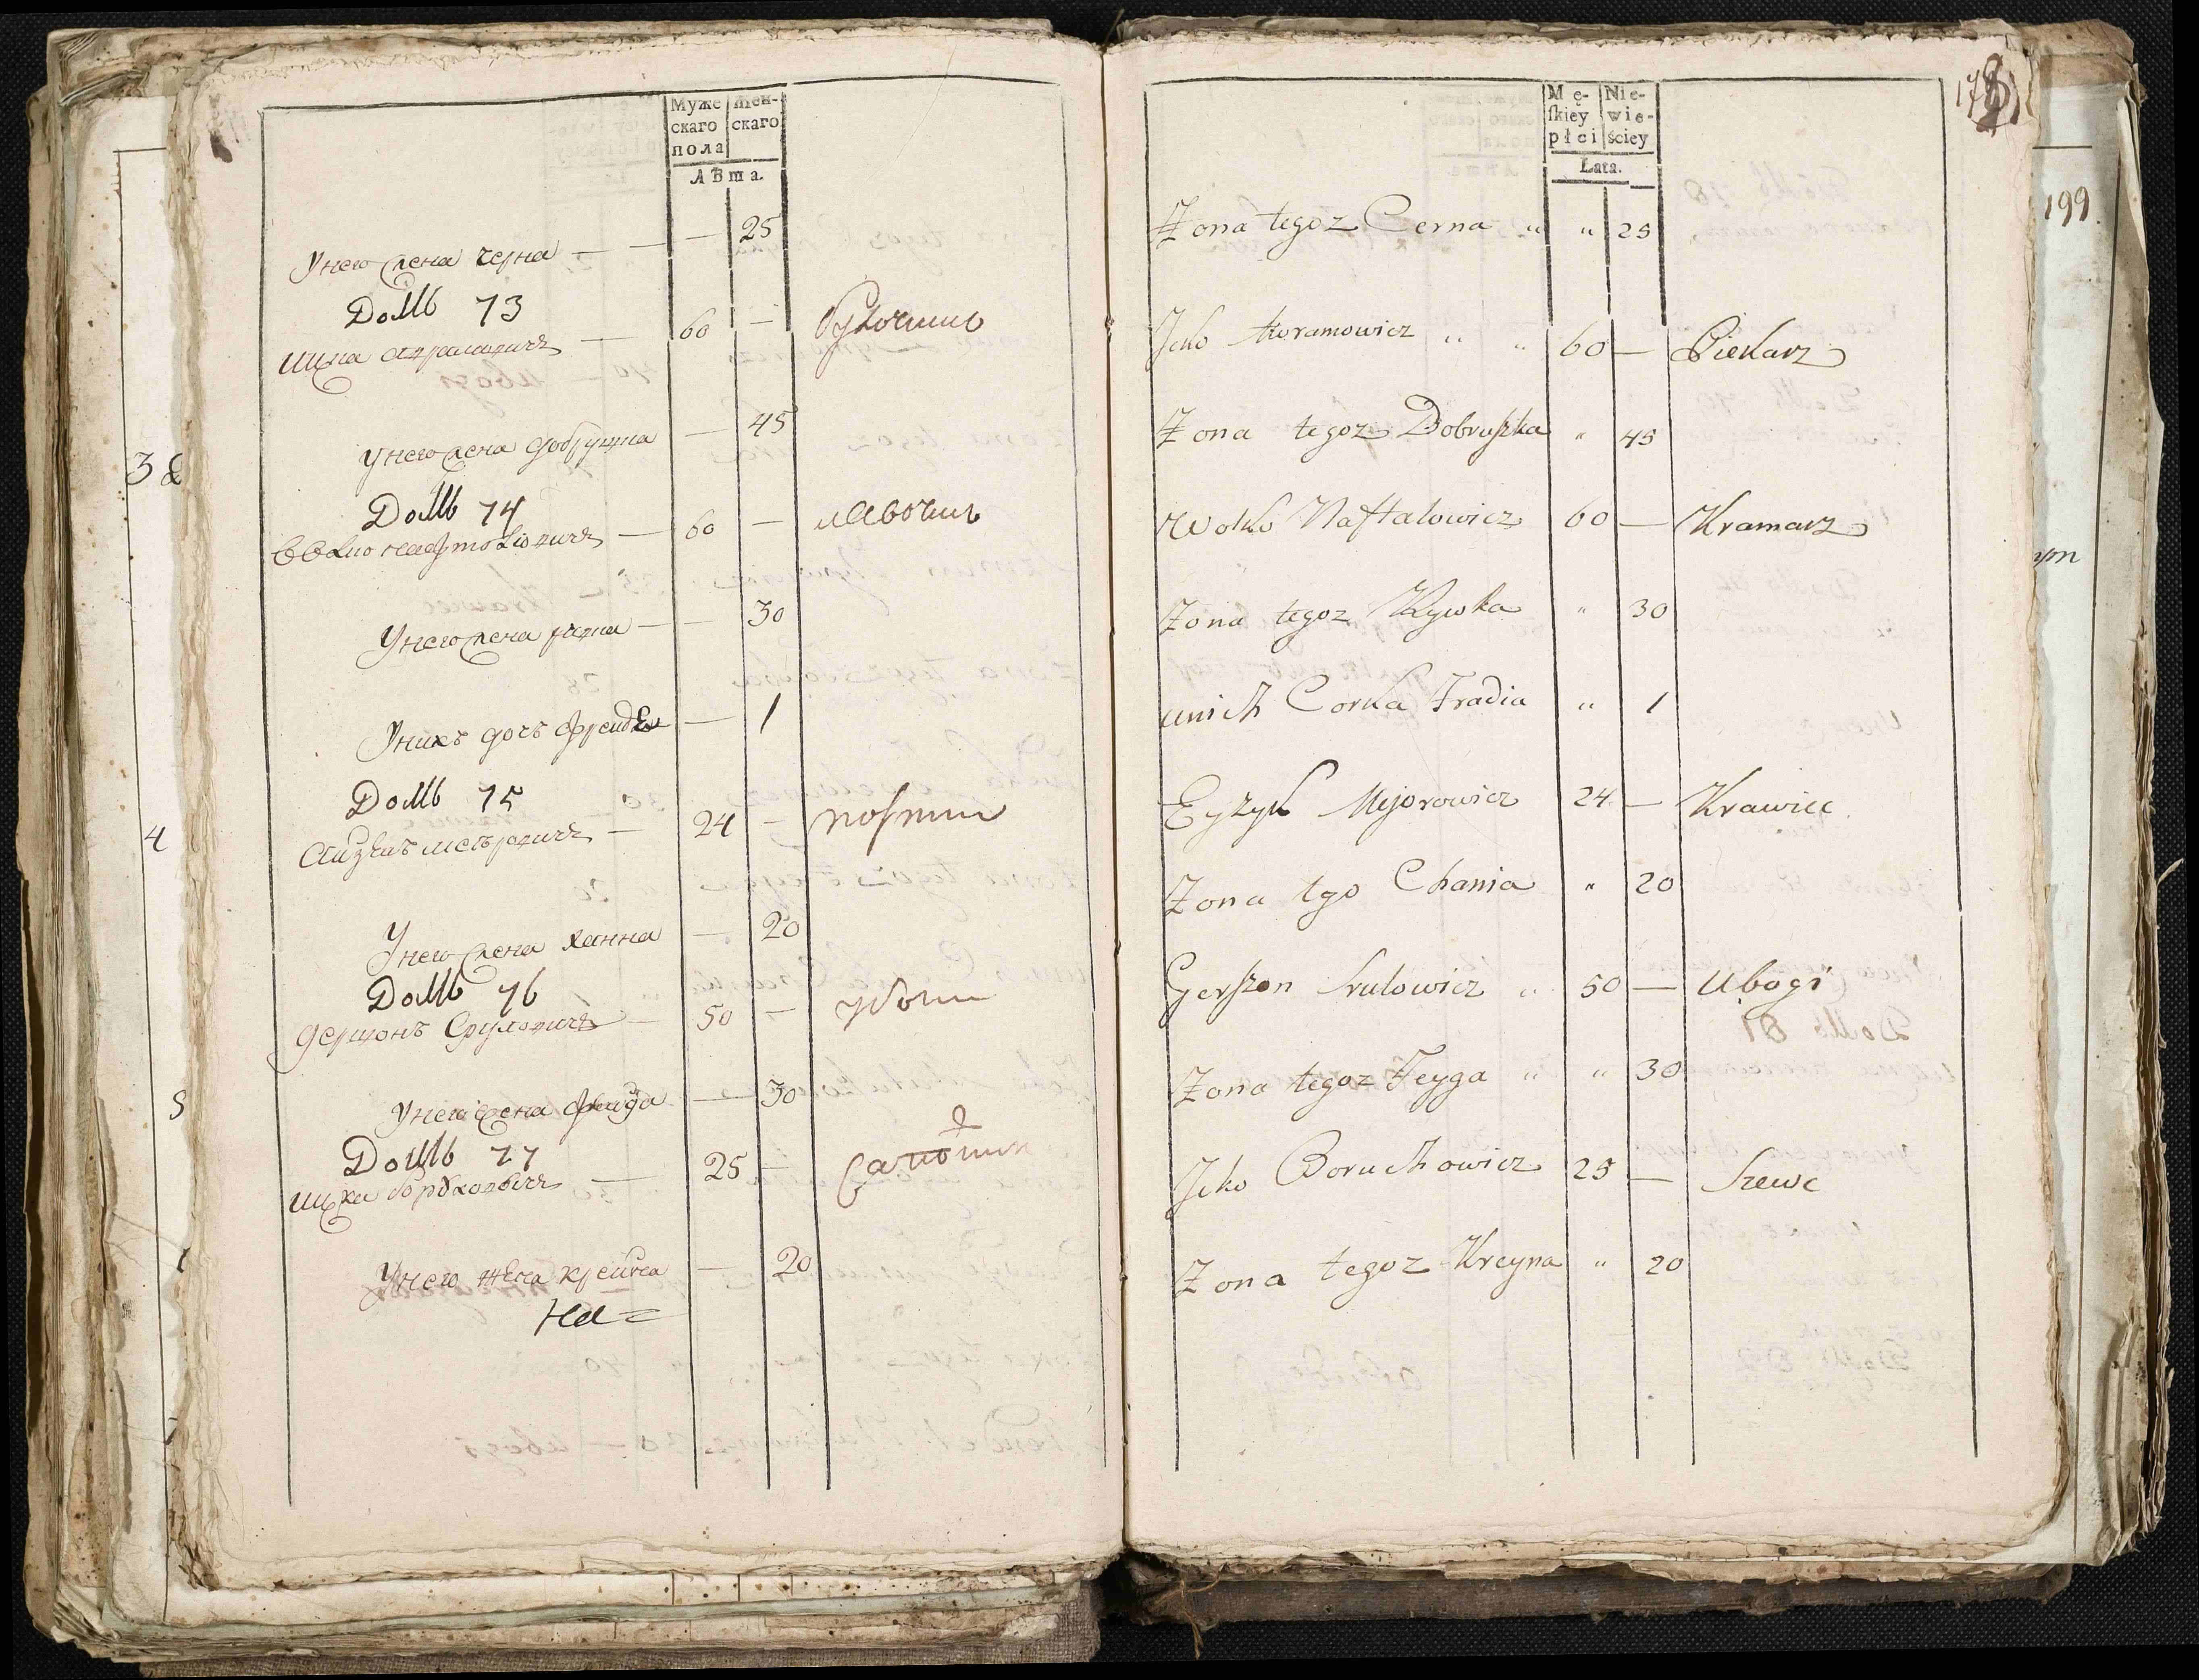 Муже
скаго
пола
Жен-
скаго
Лѣта.
У него жена черна — — — 25
Домъ 73
Ицка Абрамовичъ — 60 — булочникъ
У него жена добрушка — 45
Домъ 74
Волко Нафтоліовичъ — 60 — лавочникъ
У него жена ривка — — 30
У нихъ дочь фрейдя — 1
Домъ 75
Айзикъ меѣровичъ — 24 — портной
У него жена ханна — 20
Домъ 76
Гершонъ Срулiовичъ — 50 —
У него жена фейга — 30
Домъ 77
Ицка борухович — 25 — сапожник
У него жена крейна — 20
На=
178
Mę-
ſkiey
płci
Nie-
wie-
ściey
Lata.
Zona tegoz Cerna " " 25
Icko Abramowicz " " 60 — Piekarz
Zona tegoz Dobruszka " 45
Wolko Naftalowicz 60 — Kramarz
Zona tegoz Rywka " 30
unich Corka Fradia " 1
Eyzyk Mejorowicz 24 — Krawiec
Zona tgo Chania " 20
Gerszon Srulowicz " 50 — Ubogi
Zona tegoz Feyga " " 30
Icko Boruchowicz 25 — Szewc
Zona tegoz Kreyna " 20
199.
3
4
5